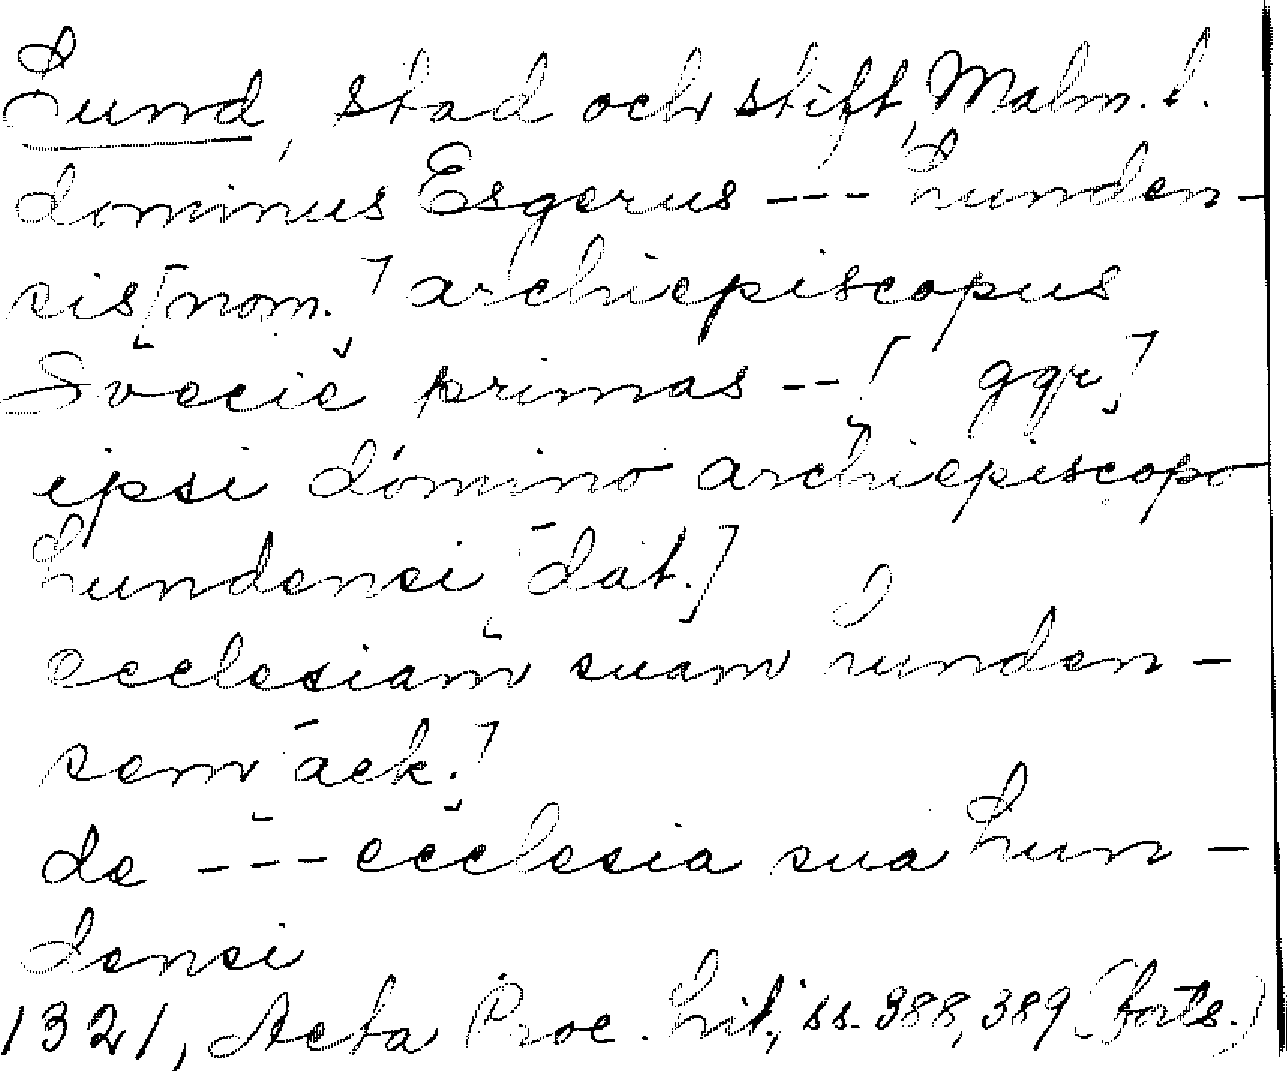 Lund, stad och stift, Malm. l.
dominus Esgerus --- Lunden-
sis [nom.] archiepiscopus
Svecie primas -- [ ggr]
ipsi domino archiepiscopo
Lundensi [dat.]
ecclesiam suam Lunden-
sem [ack.]
de --- ecclesia sua Lun-
densi
1321, Acta Proc. Lit., ss. 388, 389 (forts.)